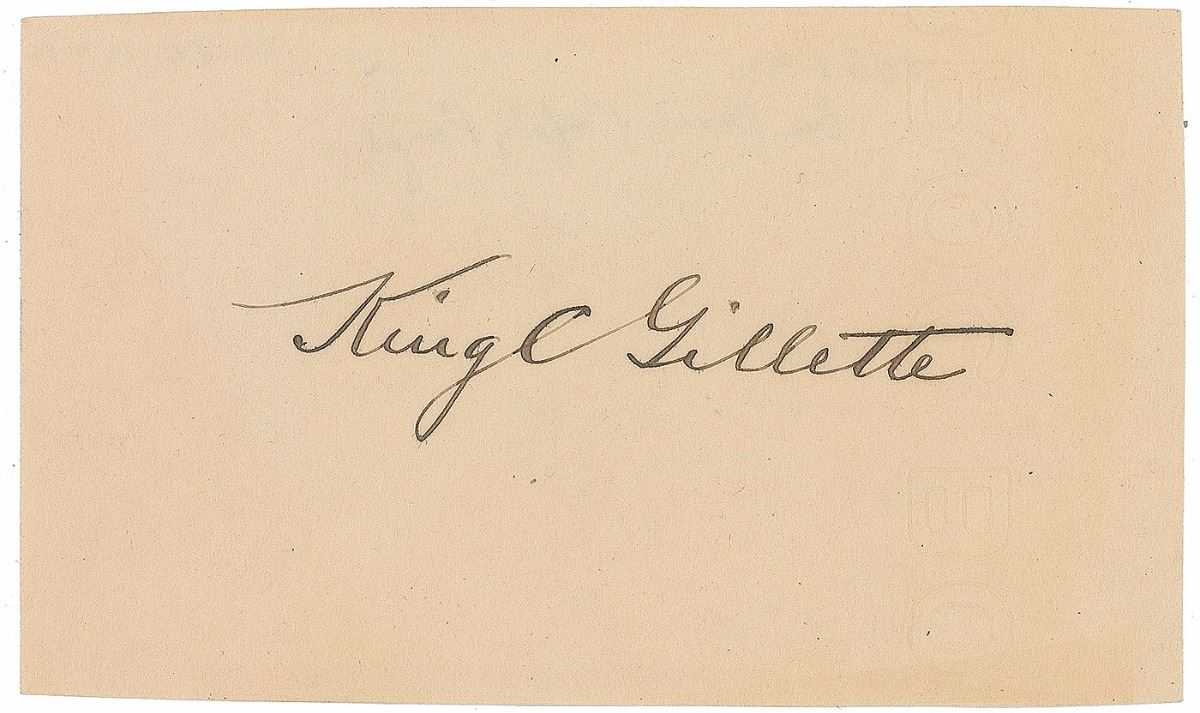 King C Gillette